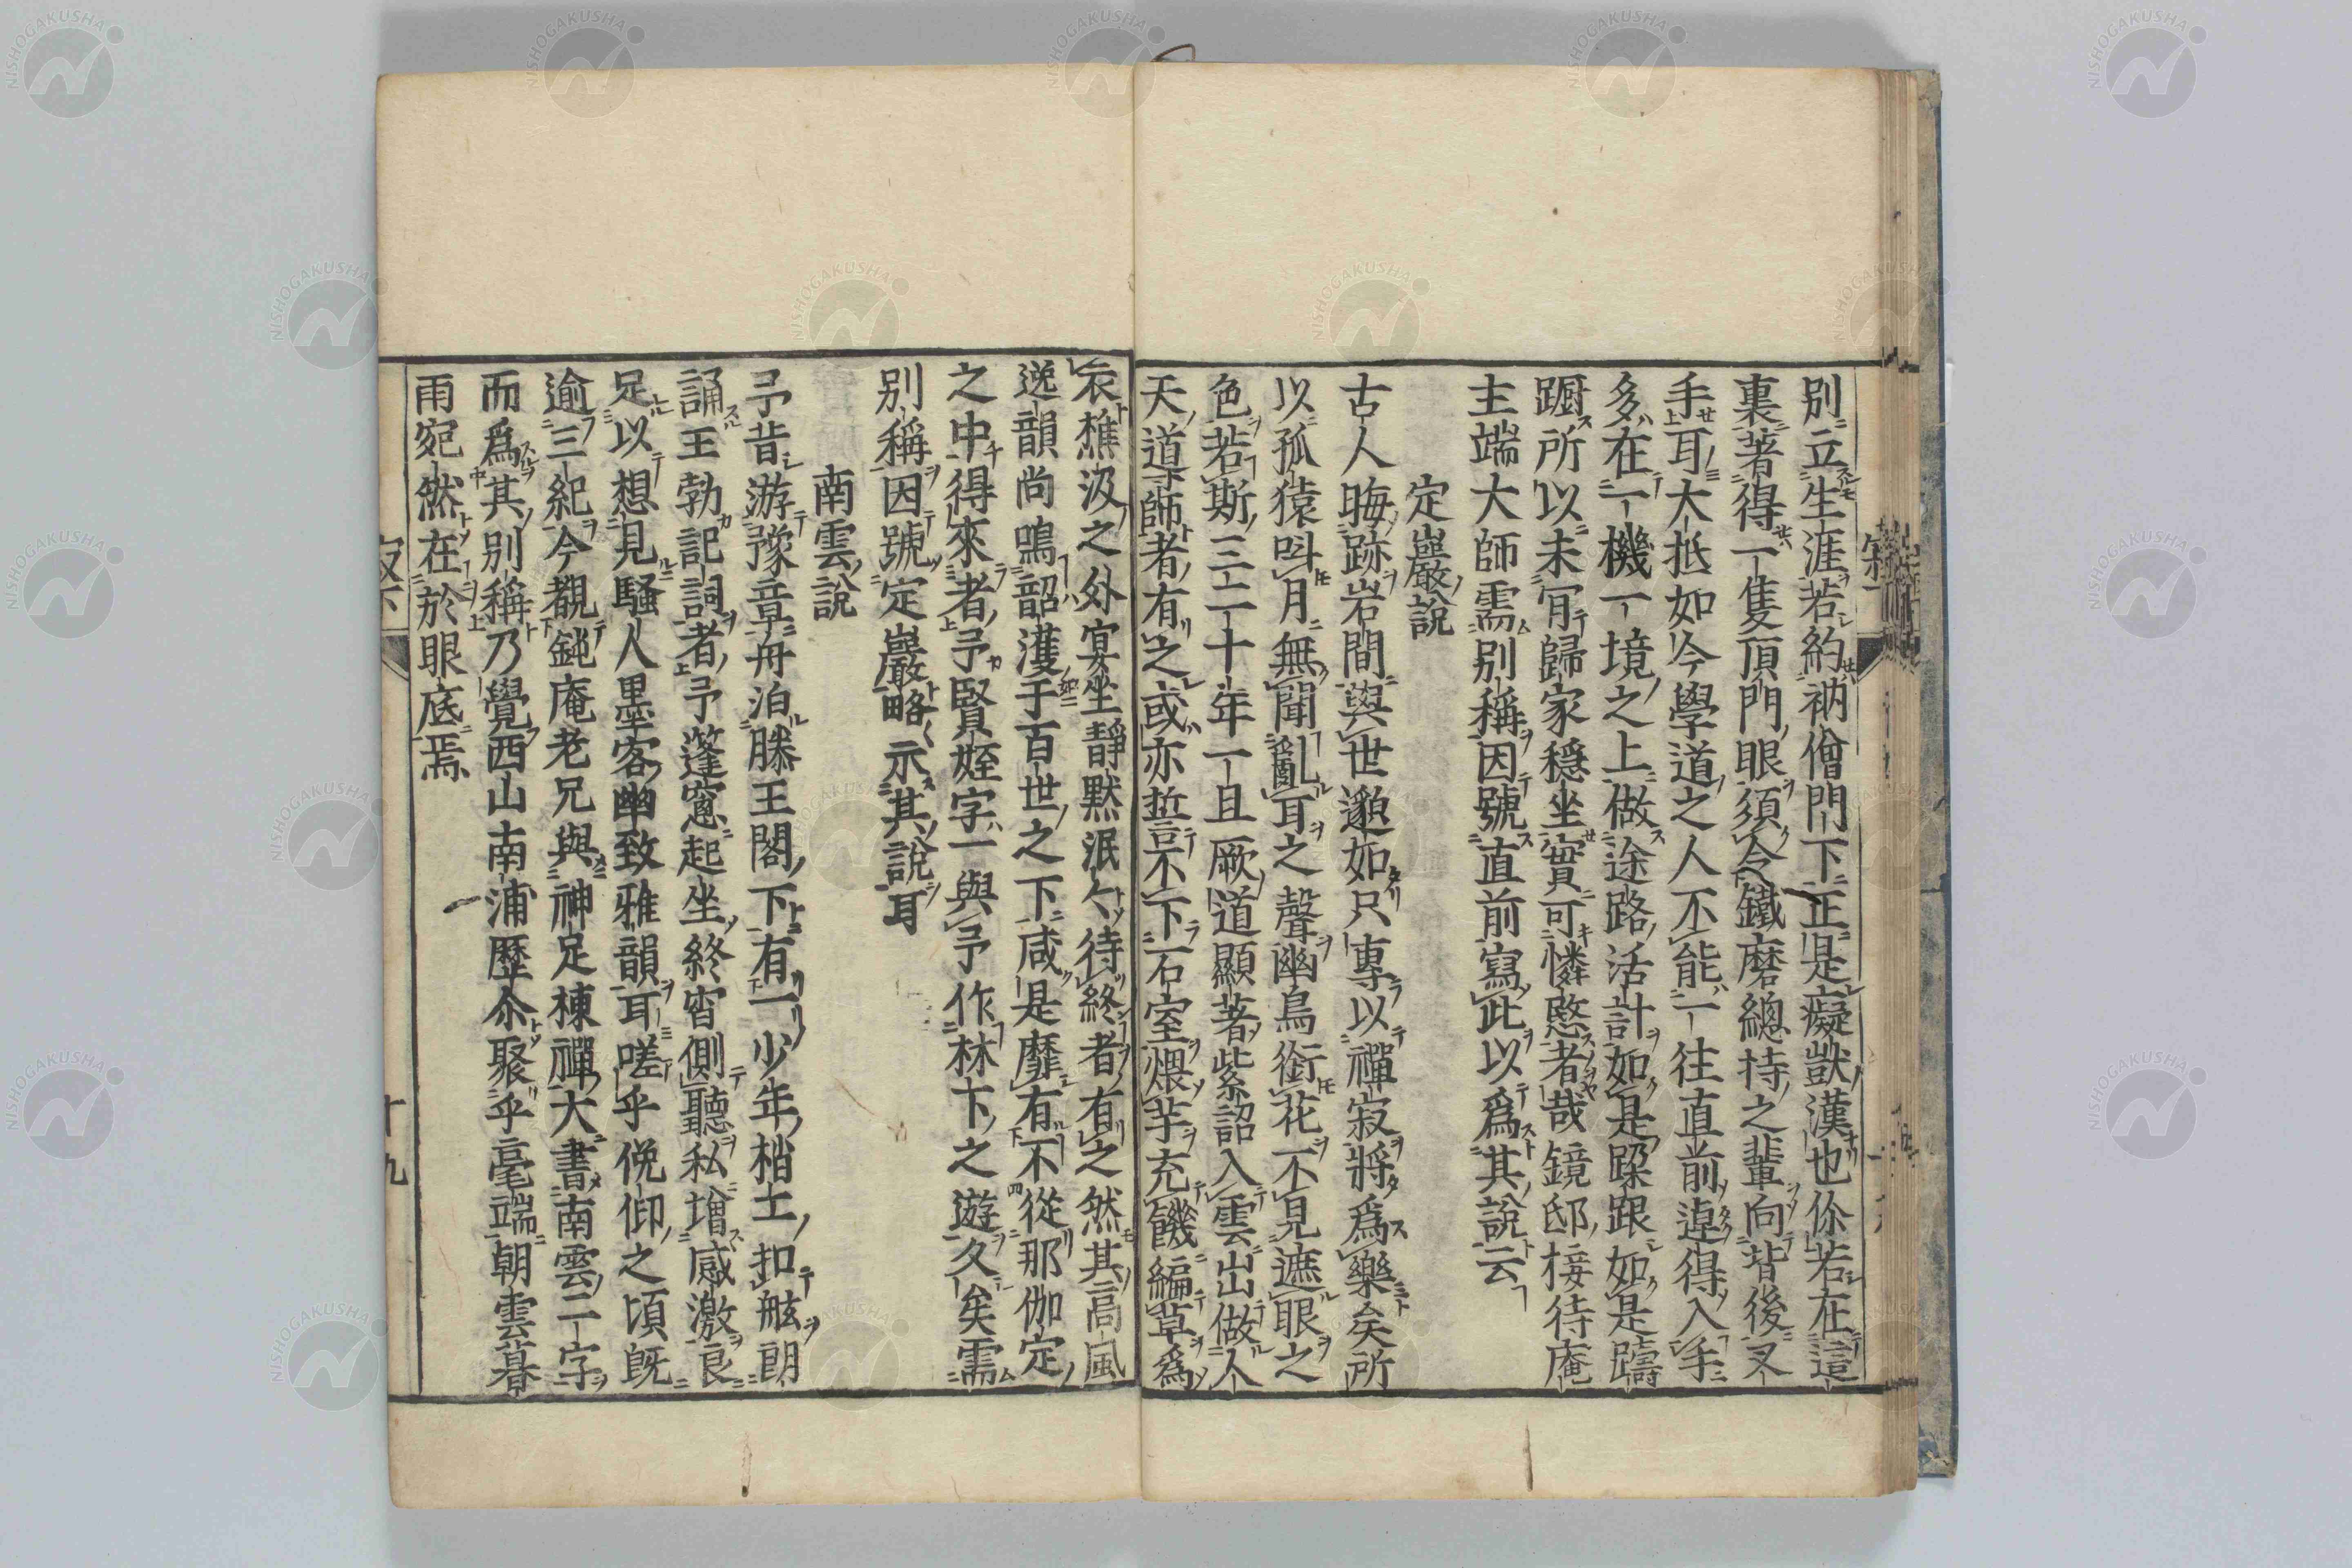 別立生涯若約衲僧門下正是癡獃漢也你若在這
裏著得一隻頂門眼須令鐵磨總持之輩向背後叉
手耳大抵如今學道之人不能一往直前逴得入手
多在一機一境之上做途路活計如是跺跟如是躊
蹰所以未肯歸家穩坐實可憐愍者哉鏡邸接待庵
主端大師需別稱因號直前寫此以爲其說云
定巖說
古人晦跡岩間與世邈如只專以禪寂將爲樂矣所
以孤猿叫月無聞亂耳之聲幽鳥銜花不見遮眼之
色若斯三二十年一旦厥道顯著紫詔入雲出山做人
天道師者有之或亦誓不下石室煨芋充饑編草爲
衣樵汲之外宴坐靜默泯々待終者有之然其高風
逸韻尚鳴韶濩于百世之下咸是靡有不從那伽定
之中得來者予賢姪字一與予作林下之遊久矣需
別稱因號定巖略示其說耳
南雲說
予昔游豫章舟泊滕王閣下有一少年梢士扣舷朗
誦王勃記詞者予蓬窻起坐終宵側聽私增感激良
足以想見騷人墨客幽致雅韻耳嗟乎俛仰之頃既
逾三紀今覩鈍庵老兄與神足棟禪大書南雲二字
而爲其別稱乃覺西山南浦歷尒聚乎毫端朝雲暮
雨宛然在於眼底焉
十九
NISHOGAKUSHA